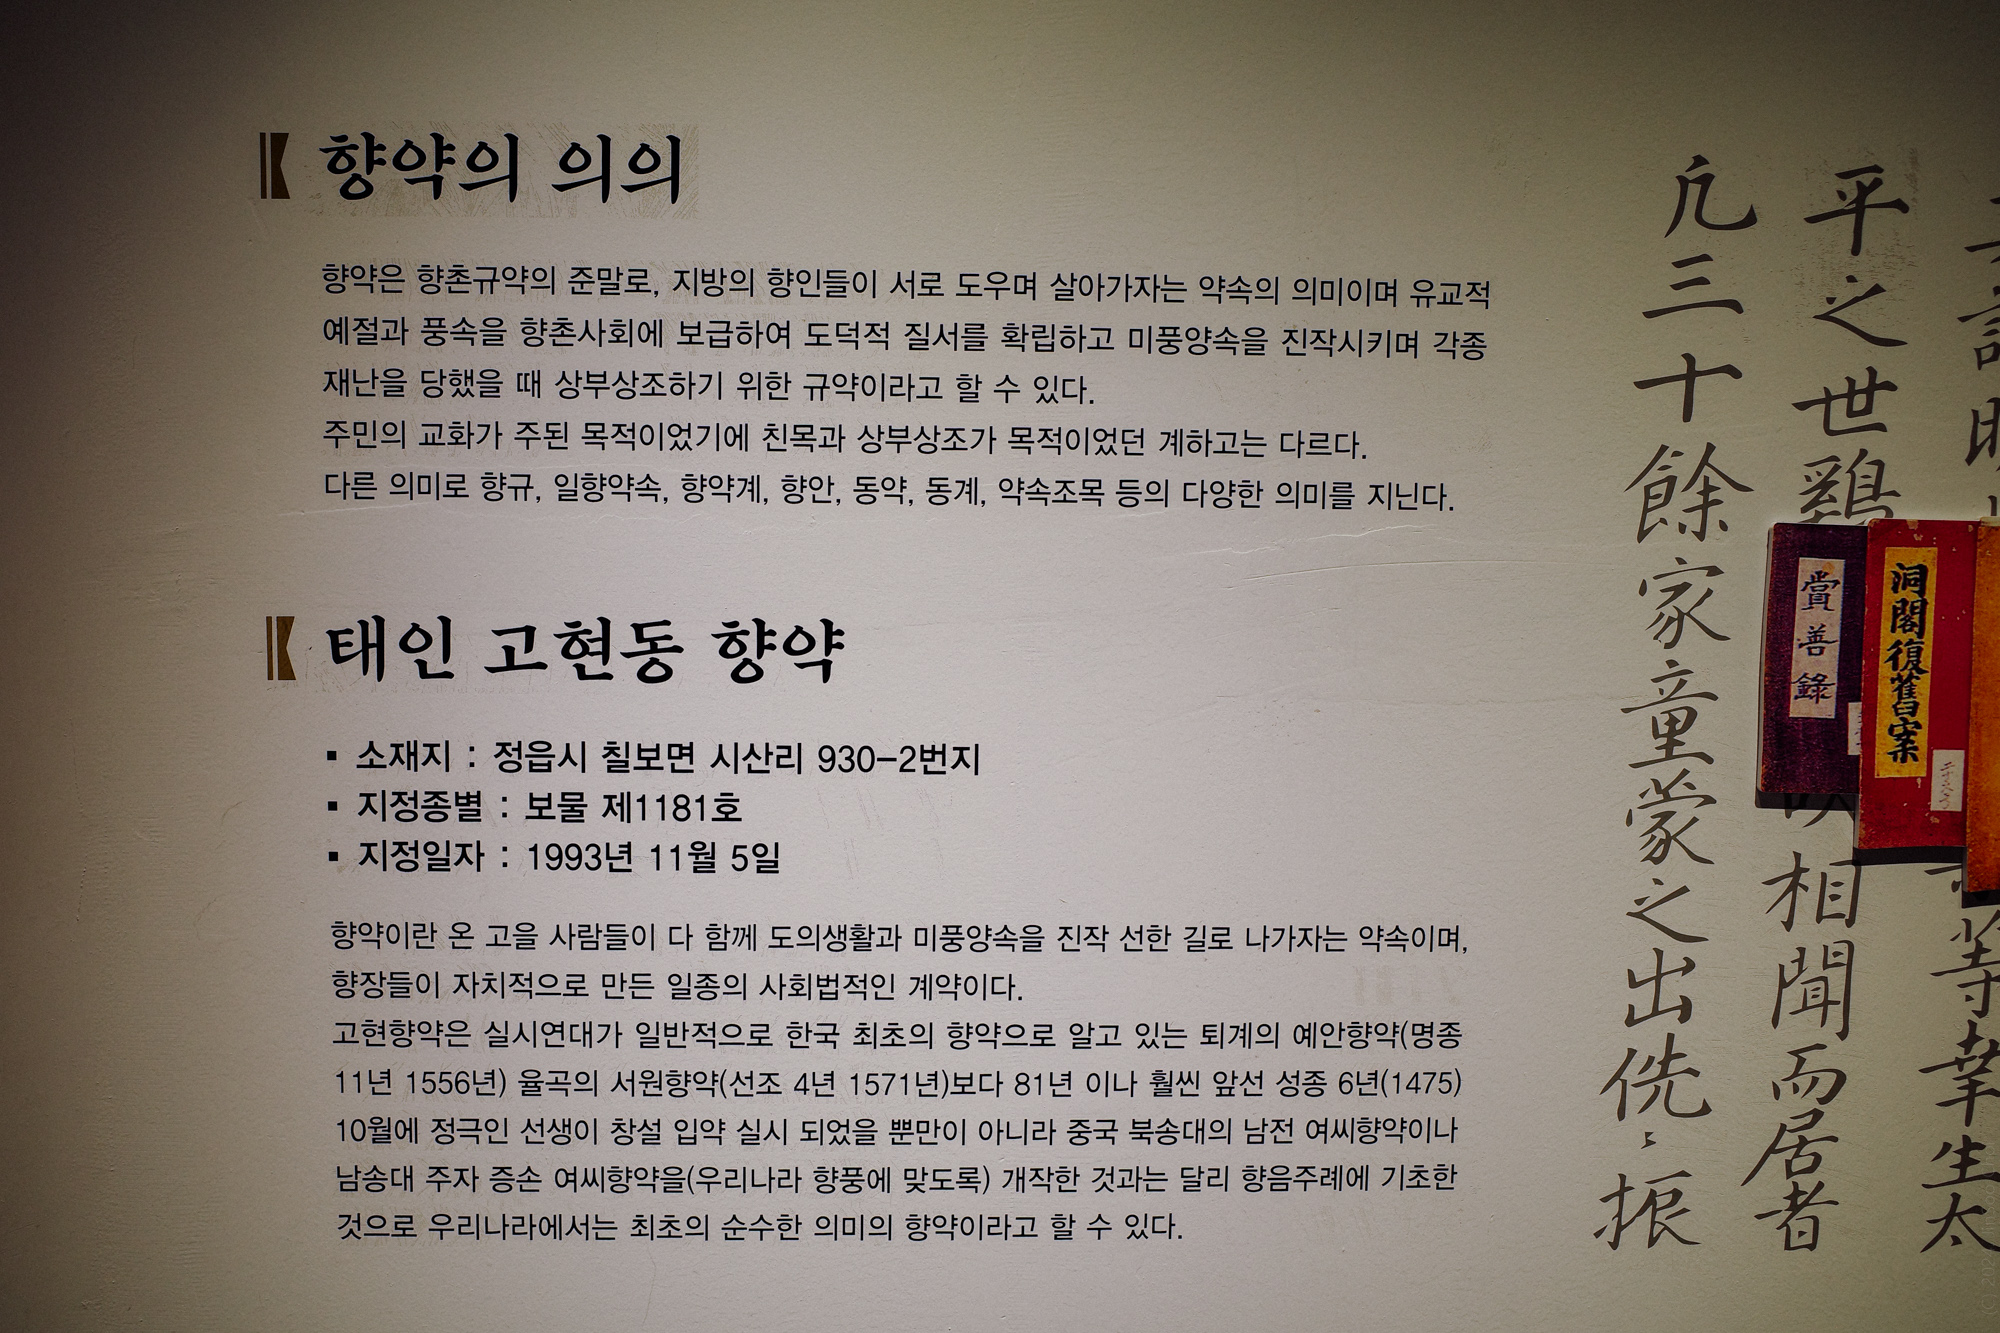 향약의 의의
향약은 향촌규약의 준말로, 지방의 향인들이 서로 도우며 살아가자는 약속의 의미이며 유교적
예절과 풍속을 향촌사회에 보급하여 도덕적 질서를 확립하고 미풍양속을 진작시키며 각종
재난을 당했을 때 상부상조하기 위한 규약이라고 할 수 있다.
주민의 교화가 주된 목적이었기에 친목과 상부상조가 목적이었던 계하고는 다르다.
다른 의미로 향규, 일향약속, 향약계, 향안, 동약, 동계, 약속조목 등의 다양한 의미를 지닌다.
태인 고현동 향약
▪ 소재지 : 정읍시 칠보면 시산리 930-2번지
▪ 지정종별 : 보물 제1181호
▪ 지정일자 : 1993년 11월 5일
향약이란 온 고을 사람들이 다 함께 도의생활과 미풍양속을 진작 선한 길로 나가자는 약속이며,
향장들이 자치적으로 만든 일종의 사회법적인 계약이다.
고현향약은 실시연대가 일반적으로 한국 최초의 향약으로 알고 있는 퇴계의 예안향약(명종
11년 1556년) 율곡의 서원향약(선조 4년 1571년)보다 81년 이나 훨씬 앞선 성종 6년(1475)
10월에 정극인 선생이 창설 입약 실시 되었을 뿐만이 아니라 중국 북송대의 남전 여씨향약이나
남송대 주자 증손 여씨향약을(우리나라 향풍에 맞도록) 개작한 것과는 달리 향음주례에 기초한
것으로 우리나라에서는 최초의 순수한 의미의 향약이라고 할 수 있다.
等幸生太
平之世鷄
相聞而居者
凢三十餘家童蒙之出侁〻振
賞善錄
洞閣復舊案